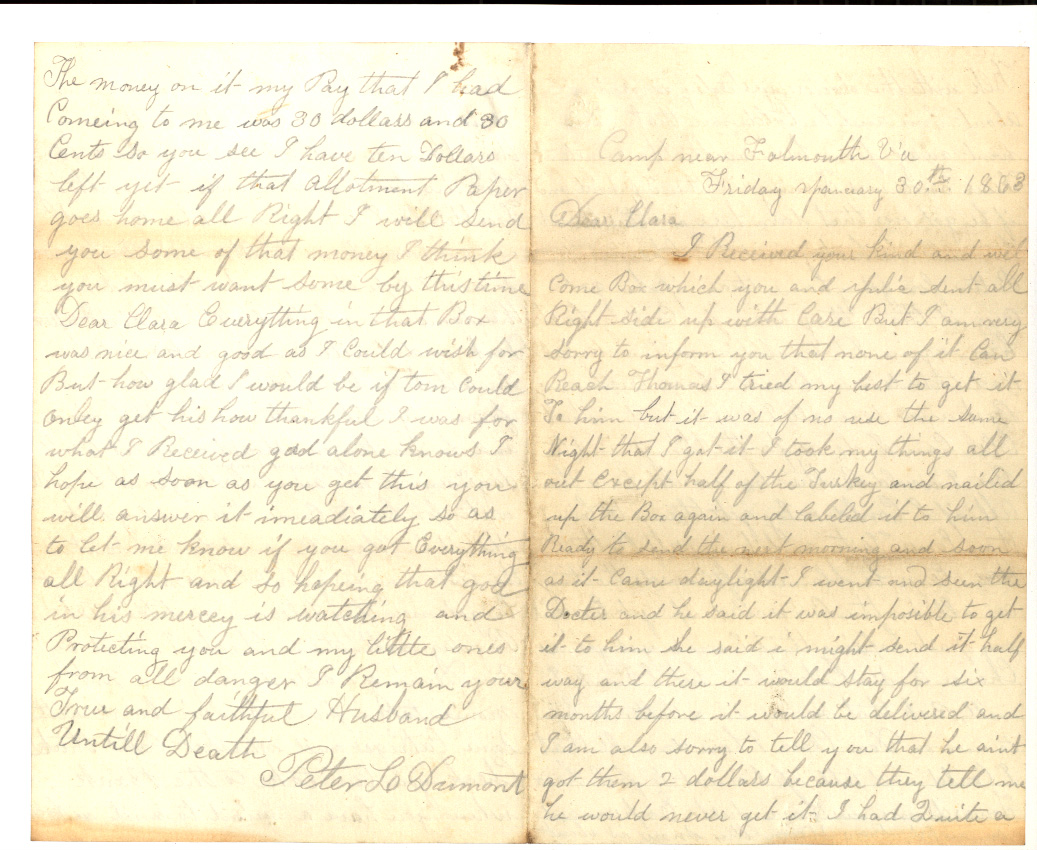 Camp near Falmouth Va
Friday January 30th. 1863
Dear Clara
I Received your kind and wel
come Box which you and Julia sent all
Right side up with Care But I am very
sorry to inform you that none of it Can
Reach Thomas I tried my best to get it
To him but it was of no use the same
Night that I got it I took my things all
out Except half of the Turkey and nailed
up the Box again and labeled it to him
Ready to send the next morning and soon
as it Came daylight I went and seen the
Docter and he said it was imposible to get
it to him he said i might send it half
way and there it would stay for six
months before it would be delivered and
I am also sorry to tell you that he aint
got them 2 dollars because they tell me
he would never get it I had Quite a
The money on it my Pay that I had
Comeing to me was 30 dollars and 30
Cents so you see I have ten Dollars
left yet if that Allotment Paper
goes home all Right I will send
you some of that money I think
you must want some by this time
Dear Clara Everything in that Box
was nice and good as I Could wish for
But how glad I would be if tom Could
Onley get his how thankful I was for
what I Received god alone knows I
hope as soon as you get this you
will answer it imeadiately so as
to let me know if you got Everything
all Right and so hopeing that god
in his mercey is watching and
Protecting you and my little ones
from all danger I Remain your
True and faithful Husband
Untill Death
Peter L Dumont